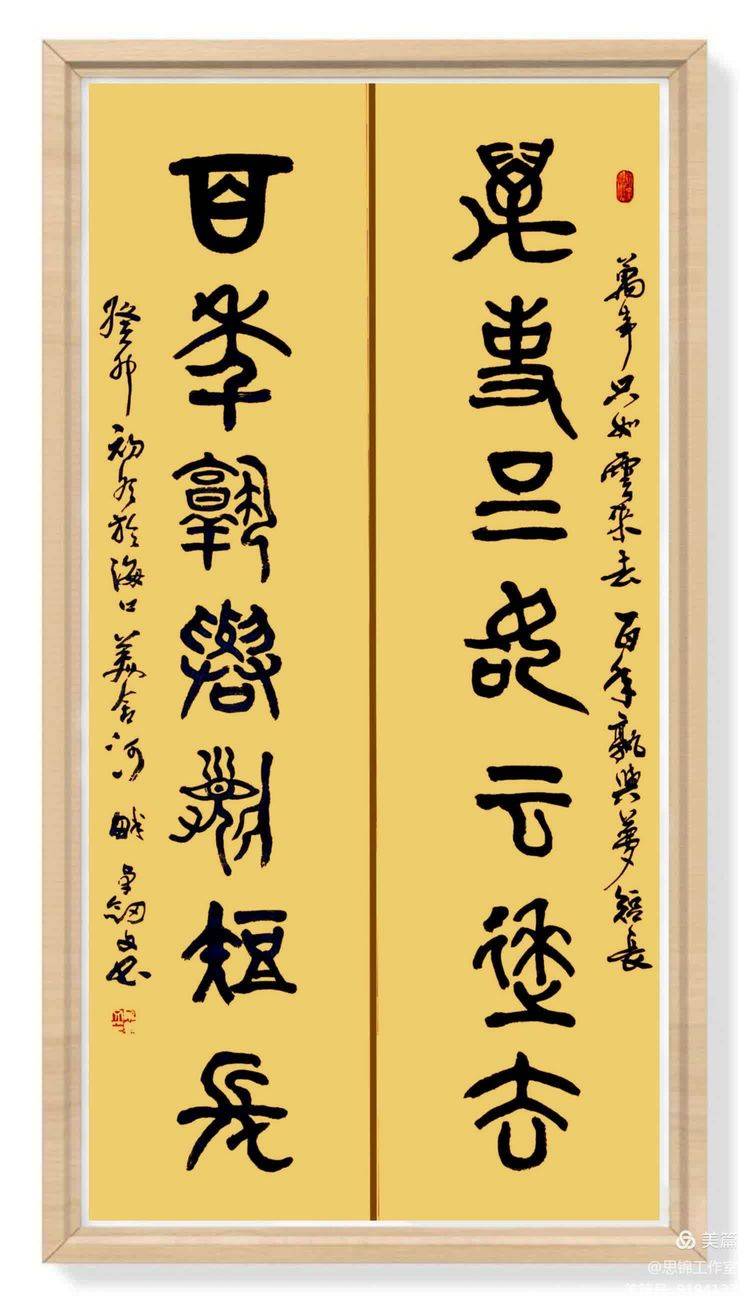 萬事只如雲來去 百年孰與夢短長
萬事只如云來去
百年孰與夢短長
癸卯初冬於海口美舍河畔
美篇
@思锦工作室